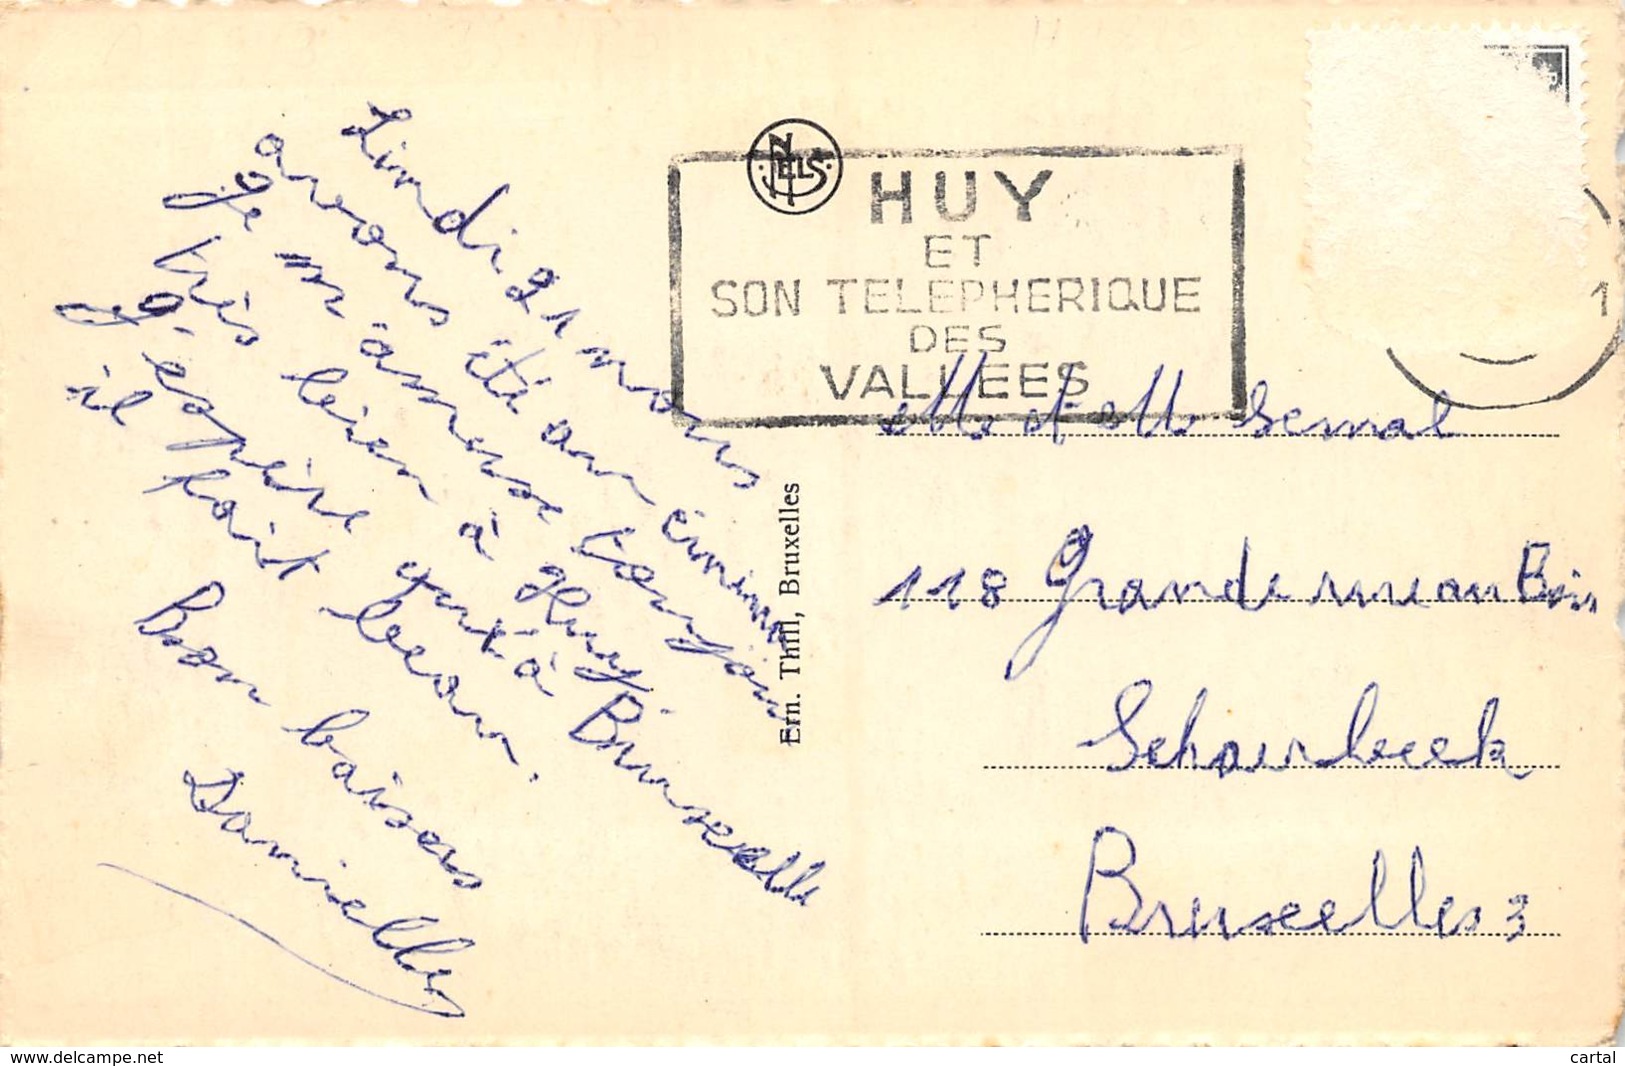 Lundi 21 nous
avons été au cinéma
Je m'amuse toujours
très bien à Huy.
J'espère qu'à Bruxelles
il fait beau.
Bon baisers
Danielle
NELS
HUY
ET
SON TELEPHERIQUE
DES
VALLEES
1
Ern. Thill, Bruxelles
et Semal
118 Grande rue au Bois
Schaerbeek
Bruxelles 3
www.delcampe.net
cartal